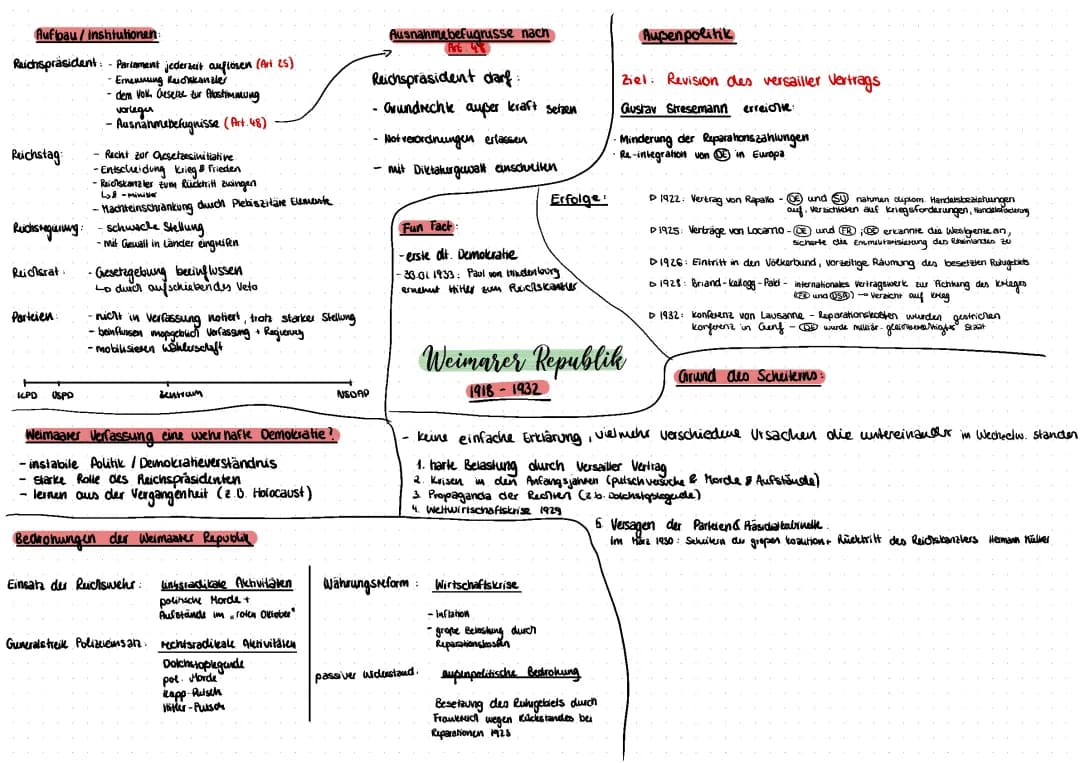 Aufbau / Institutionen:
Reichspräsident: - Parlament jederzeit auflösen (Art 25)
- Ernennung Reichskanzler
- dem Volk Gesetze zur Abstimmung
vorlegen
- Ausnahmebefugnisse (Art. 48)
Reichstag: - Recht zur Gesetzesinitiative
- Entscheidung Krieg & Frieden
- Reichskanzler zum Rücktritt zwingen
↳ & -minister
- Machteinschränkung durch Plebiszitäre Elemente
Reichsregierung: - schwache Stellung
- mit Gewalt in Länder eingreifen
Reichsrat: - Gesetzgebung beeinflussen
↳ durch aufschiebendes Veto
Parteien: - nicht in Verfassung notiert, trotz starker Stellung
- beinflussen maßgeblich Verfassung + Regierung
- mobilisieren Wählerschaft
KPD USPD Zentrum NSDAP
Ausnahmebefugnisse nach
Art. 48
Reichspräsident darf:
- Grundrechte außer kraft setzen
- Notverordnungen erlassen
- mit Diktaturgewalt einschreiten
Außenpolitik
Ziel: Revision des versailler Vertrags
Gustav Stresemann erreichte:
- Minderung der Reparationszahlungen
- Re-integration von DE in Europa
Erfolge:
▷ 1922: Vertrag von Rapallo - DE und SU nahmen diplom. Handelsbeziehungen
auf, verzichteten auf Kriegsforderungen, Handelsförderung
▷ 1925: Verträge von Locarno - DE und FR; DE erkannte die Westgrenze an,
sicherte die Entmilitarisierung des Rheinlandes zu
▷ 1926: Eintritt in den Völkerbund, vorzeitige Räumung des besetzten Ruhrgebiets
▷ 1928: Briand-Kellogg-Pakt - internationales Vertragswerk zur Ächtung des Krieges
(FR und USA) → Verzicht auf Krieg
▷ 1932: Konferenz von Lausanne - Reparationskosten wurden gestrichen
Konferenz in Genf - DE wurde militär. gleichberechtigter Staat
Fun Fact:
- erste dt. Demokratie
- 30.01.1933: Paul von Hindenburg
ernennt Hitler zum Reichskanzler
Weimarer Republik
1918 - 1932
Grund des Scheiterns:
- keine einfache Erklärung, vielmehr verschiedene Ursachen die untereinander in Wechselw. standen
1. harte Belastung durch Versailler Vertrag
2. Krisen in den Anfangsjahren (putschversuche & Morde & Aufstände)
3. Propaganda der Rechten (z.b. Dolchstoßlegende)
4. Weltwirtschaftskrise 1929
5. Versagen der Parteien & Präsidialkabinette
im März 1930: Scheitern der großen koalition + Rücktritt des Reichskanzlers Hermann Müller
Weimarer Verfassung eine wehrhafte Demokratie?
- instabile Politik / Demokratieverständnis
- starke Rolle des Reichspräsidenten
- lernen aus der Vergangenheit (z.B. Holocaust)
Bedrohungen der Weimarer Republik
Einsatz der Reichswehr: linksradikale Aktivitäten
politische Morde +
Aufstände im „roten Oktober"
Generalstreik Polizeieinsatz: rechtsradikale Aktivitäten
Dolchstoßlegende
pol. Morde
Kapp-Putsch
Hitler-Putsch
Währungsreform: Wirtschaftskrise
- Inflation
- große Belastung durch
Reparationskosten
passiver Widerstand: außenpolitische Bedrohung
Besetzung des Ruhrgebiets durch
Frankreich wegen Rückstandes bei
Reparationen 1923